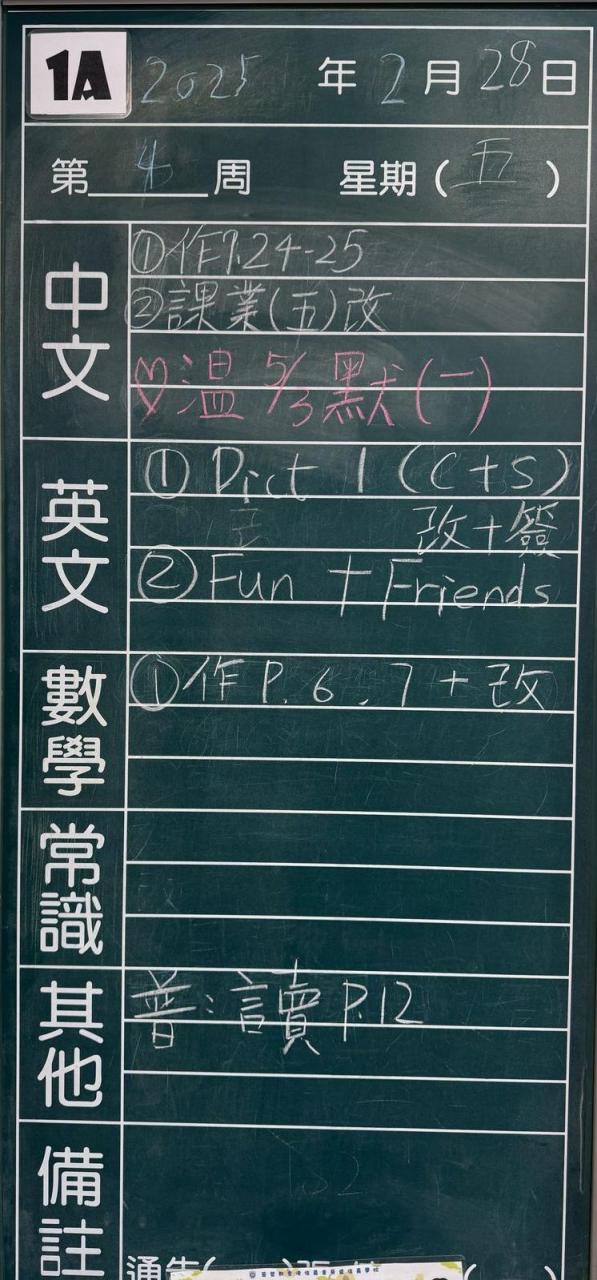 1A 2025年2月28日
第4周 星期(五)
中文
①作P.24-25
②課業(五)改
♡溫5/3默(一)
英文
① Dict 1 (C+S)
改+簽
② Fun + Friends
數學
①作 P. 6 . 7 + 改
常識
其他
普:讀 P.12
備註
通告(